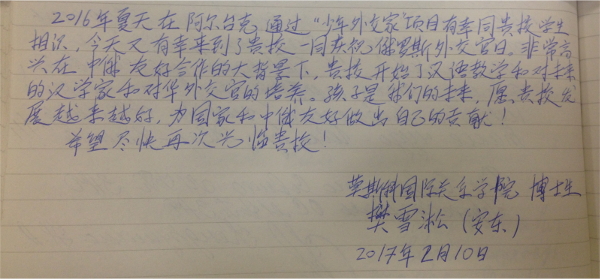 2016年夏天在阿尔台克,通过“少年外交家”项目有幸同贵校学生
相识,今天又有幸来到了贵校一同庆祝俄罗斯外交官日。非常高
兴在中俄友好合作的大背景下,贵校开始了汉语教学和对未来
的汉学家和对华外交官的培养。孩子是我们的未来,愿贵校发
展越来越好,为国家和中俄友好做出自己的贡献!
希望尽快再次光临贵校!
莫斯科国际关系学院 博士生
樊雪淞(安东)
2017年2月10日